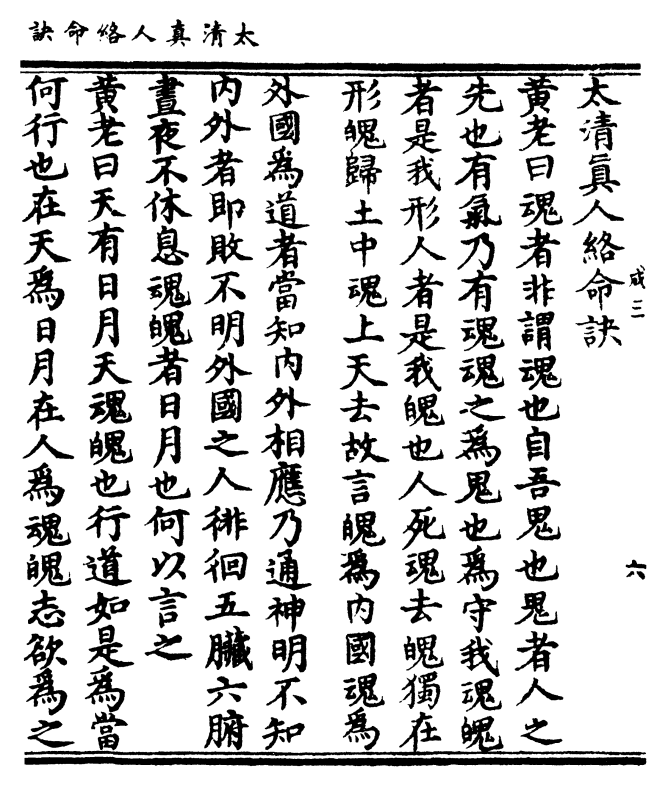 太清真人絡命訣
太清眞人絡命訣
咸三
六
黃老曰魂者非謂魂也自吾鬼也鬼者人之
先也有氣乃有魂魂之爲鬼也爲守我魂魄
者是我形人者是我魄也人死魂去魄獨在
形魄歸土中魂上天去故言魄爲內國魂爲
外國爲道者當知內外相應乃通神明不知
內外者即敗不明外國之人徘徊五臟六腑
晝夜不休息魂魄者日月也何以言之
黃老曰天有日月天魂魄也行道如是爲當
何行也在天爲日月在人爲魂魄志欲爲之